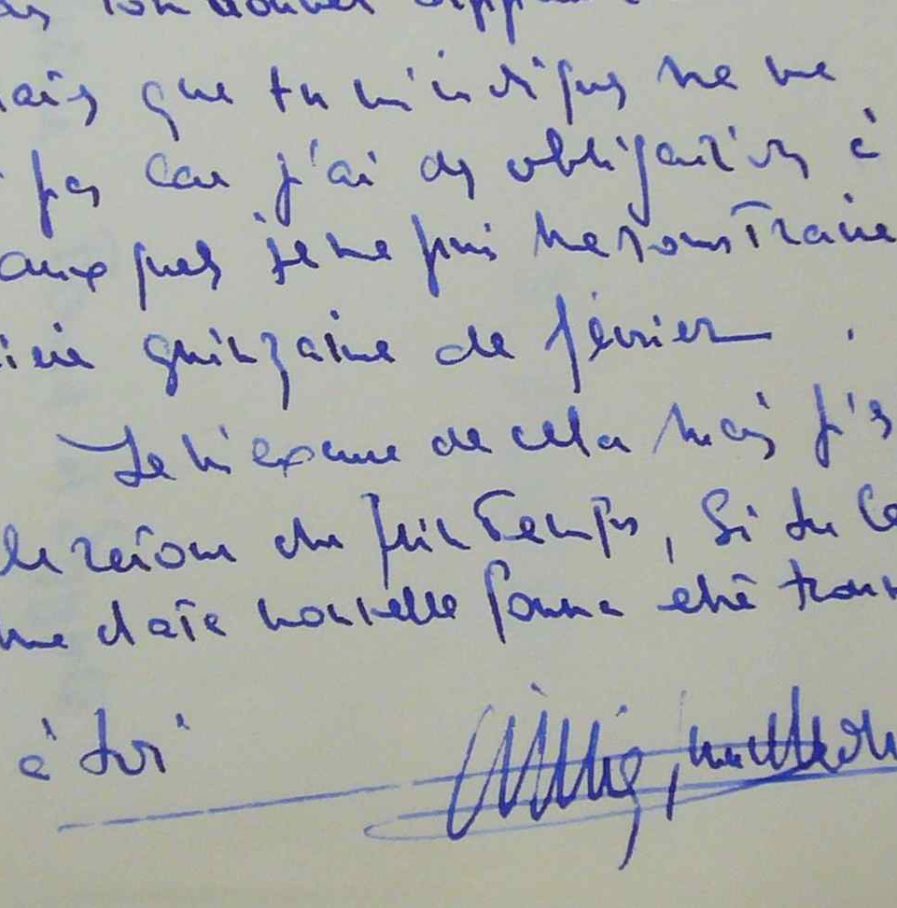 mais que tu m'indiques ne me
pas car j'ai des obligations à
auxquels je ne puis me soustraire
quinzaine de février .
Je m'excuse de cela mais j'es
du printemps, Si tu le
une date nouvelle pourra être trouv
à toi